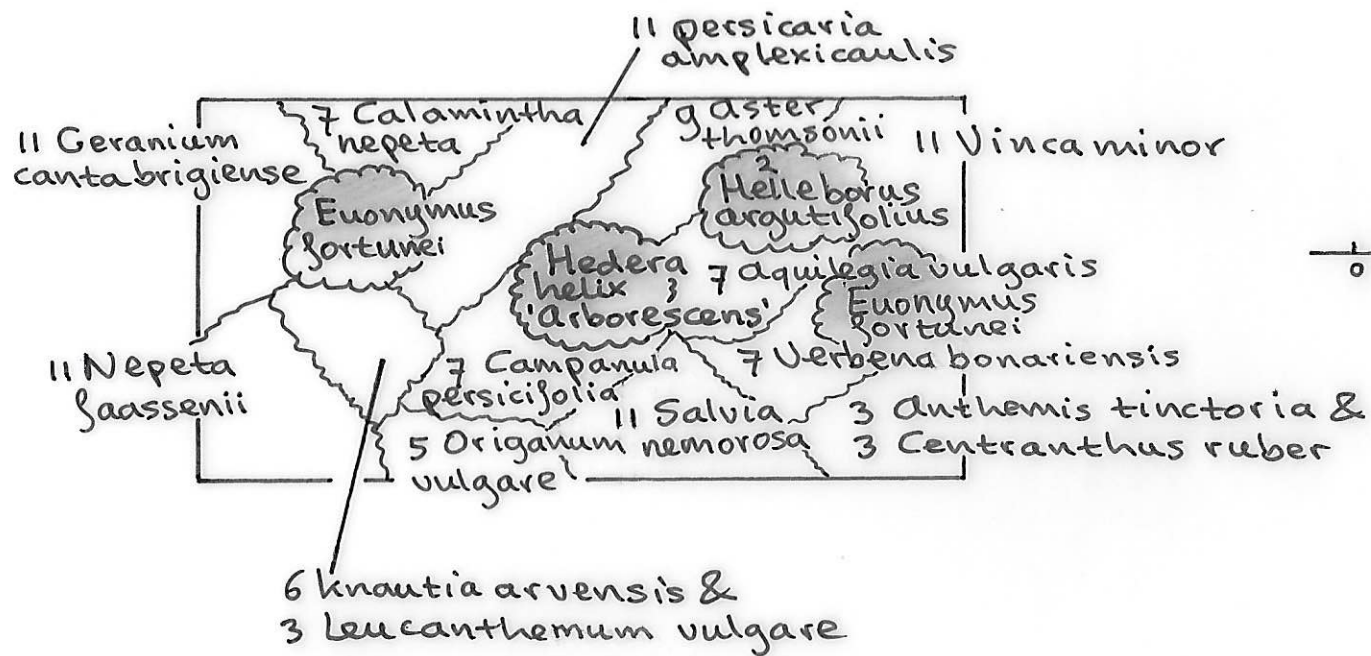 11 persicaria
amplexicaulis
7 Calamintha
nepeta
9 aster
thomsonii
11 Geranium
cantabrigiense
11 Vinca minor
2
Helleborus
argutifolius
Euonymus
fortunei
Hedera
helix 3
'arborescens'
7 aquilegia vulgaris
0
Euonymus
fortunei
11 Nepeta
faassenii
7 Campanula
persicifolia
7 Verbena bonariensis
11 Salvia
nemorosa
3 anthemis tinctoria &
3 Centranthus ruber
5 Origanum
vulgare
6 knautia arvensis &
3 Leucanthemum vulgare